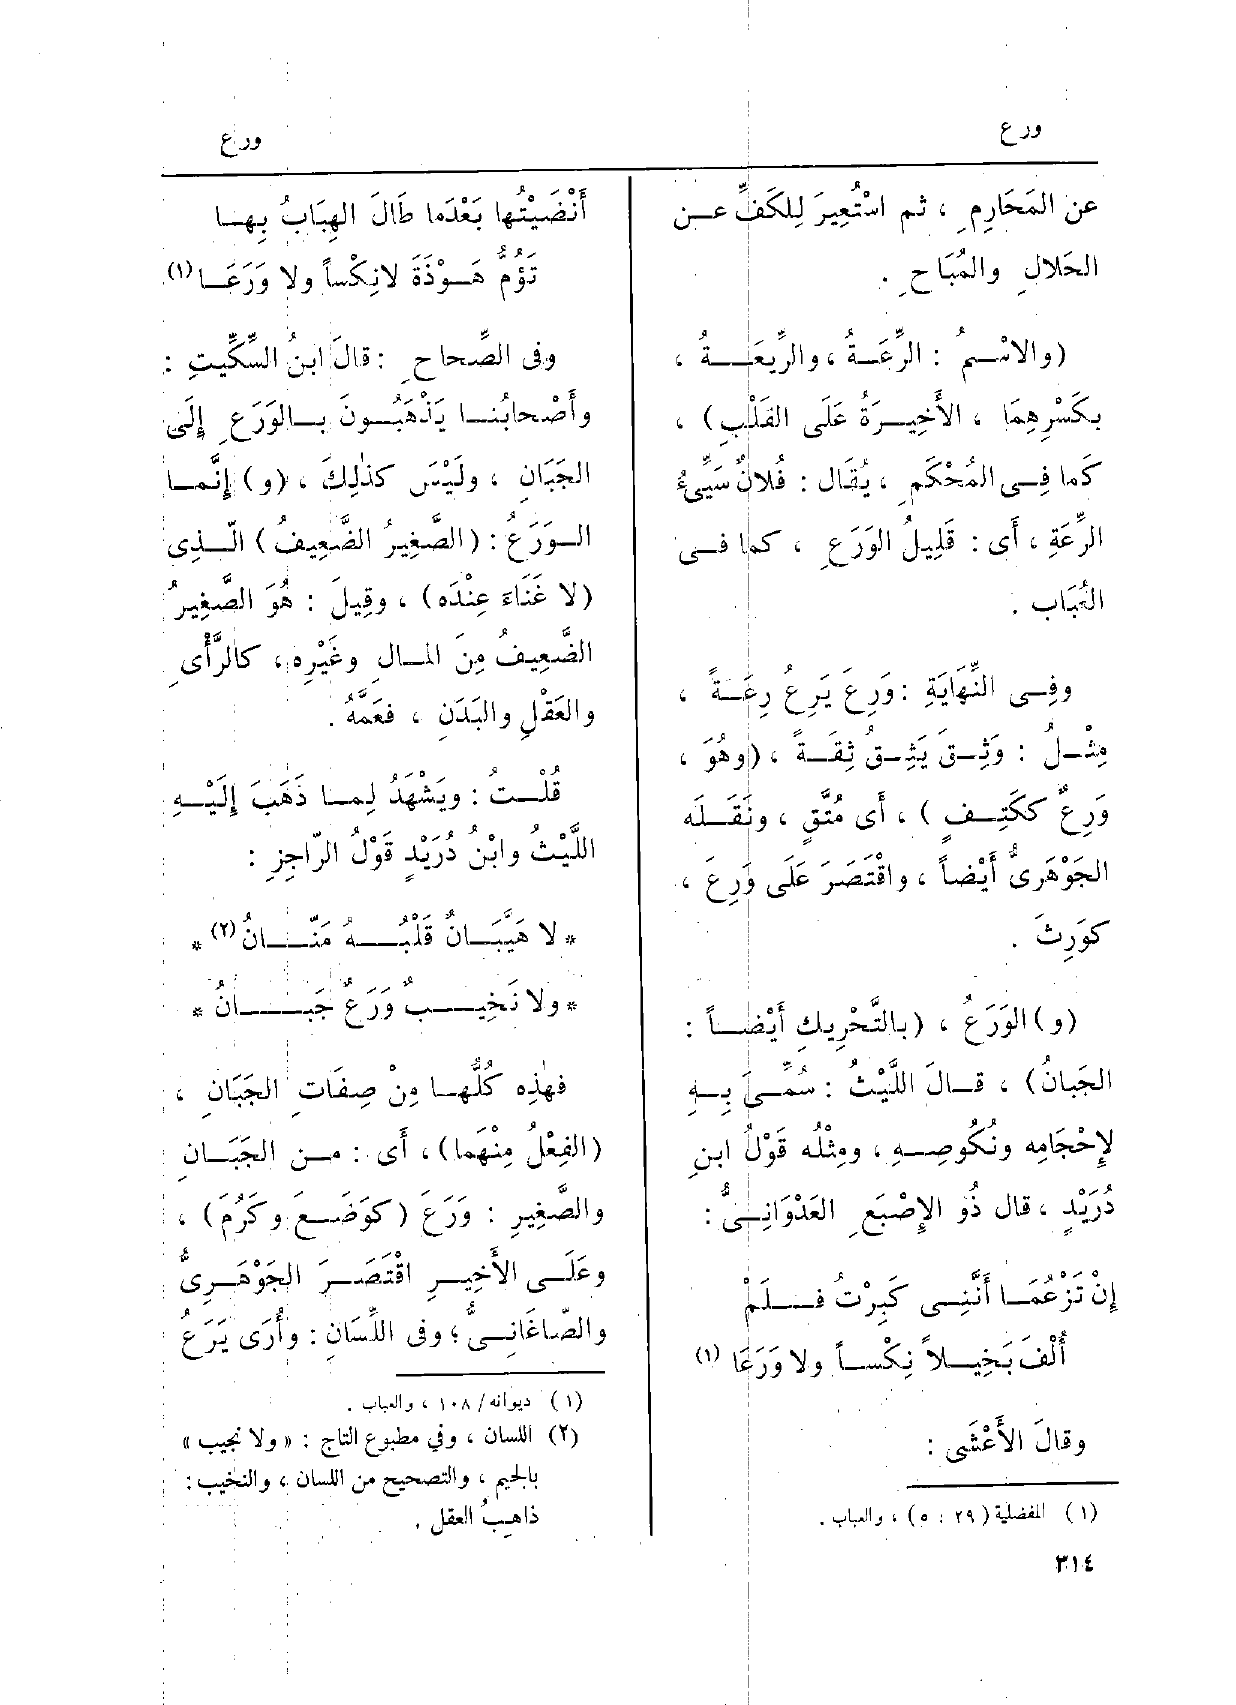 ورع
ورع
عن المَحَارِمِ ، ثم اسْتُعِيرَ لِلكَفِّ عـن
الحَلالِ والمُبَاحِ .
(والاسْـمُ : الرِّعَـةُ ، والرِّيعَـــةُ ،
بكَسْرِهِمَا ، الأَخِيـرَةُ عَلَى القَلْبِ) ،
كما فِـى المُحْكَمِ ، يُقَال : فُلانٌ سَيِّئُ
الرِّعَةِ ، أَى : قَلِيلُ الوَرَعِ ، كما فـى
العُبَاب .
وفِـى النِّهَايَةِ : وَرِعَ يَرِعُ رِعَـةً ،
مِثْـلُ : وَثِـقَ يَثِـقُ ثِقَـةً ، (وهُوَ ،
وَرِعٌ ككَتِـفٍ ) ، أَى مُتَّقٍ ، ونَقَـلَه
الجَوْهَرِىُّ أَيْضاً ، واقْتَصَرَ عَلَى وَرِعَ ،
كوَرِثَ .
(و) الوَرَعُ ، (بالتَّحْرِيكِ أَيْضـاً :
الجَبانُ) ، قـالَ اللَّيْثُ : سُمِّـىَ بِـهِ
لإِحْجَامِه ونُكُوصِـهِ ، ومِثْلُه قَوْلُ ابنِ
دُرَيْدٍ ، قال ذُو الإِصْبَعِ العَدْوَانِـىُّ :
إِنْ تَزْعُمَـا أَنَّنِـى كَبِرْتُ فـــلَمْ
أُلْفَ بَخِيـلاً نِكْسـاً ولا وَرَعَا (١)
وقالَ الأَعْشَى :
(١) المفضلية (٢٩ : ٥) ، والعباب .
٣١٤
أَنْضَيْتُها بَعْدَما طَالَ الهِبَابُ بِهـا
تَؤُمُّ هَـوْذَةَ لانِكْساً ولا وَرَعَـا (١)
وفى الصِّحاحِ : قالَ ابنُ السِّكِّيتِ :
وأَصْحابُنـا يَذْهَبُـونَ بـالوَرَعِ إِلَى
الجَبَانِ ، ولَيْسَ كذٰلِكَ ، (و) إِنَّمـا
الـوَرَعُ : (الصَّغِيرُ الضَّعِيفُ) الَّـذِى
(لا غَنَاءَ عِنْدَه) ، وقِيلَ : هُوَ الصَّغِيرُ
الضَّعِيفُ مِنَ المـالِ وغَيْرِه ، كالرَّأْىِ
والعَقْلِ والبَدَنِ ، فعَمَّهُ .
قُلْـتُ : ويَشْهَدُ لِمـا ذَهَبَ إِلَيْـهِ
اللَّيْثُ وابْنُ دُرَيْدٍ قَوْلُ الرّاجِزِ :
* لا هَيَّبَـانٌ قَلْبُـــهُ مَنّـــانُ (٢) *
* ولا نَخِيـــبٌ وَرَعٌ جَبـــانُ *
فهٰذِه كُلُّهـا مِنْ صِفَاتِ الجَبَانِ ،
(الفِعْلُ مِنْهُما) ، أَى : مـن الجَبَـانِ
والصَّغِيرِ : وَرَعَ (كوَضَـعَ وكَرُمَ) ،
وعَلَـى الأَخِيـرِ اقْتَصَـرَ الجَوْهَـرِىُّ
والصّاغَانِـىُّ ؛ وفى اللِّسَانِ : وأُرَى يَرَعُ
(١) ديوانه / ١٠٨ ، والعباب .
(٢) اللسان ، وفي مطبوع التاج : « ولا نجيب »
بالجيم ، والتصحيح من اللسان ، والنخيب :
ذاهِبُ العقل .